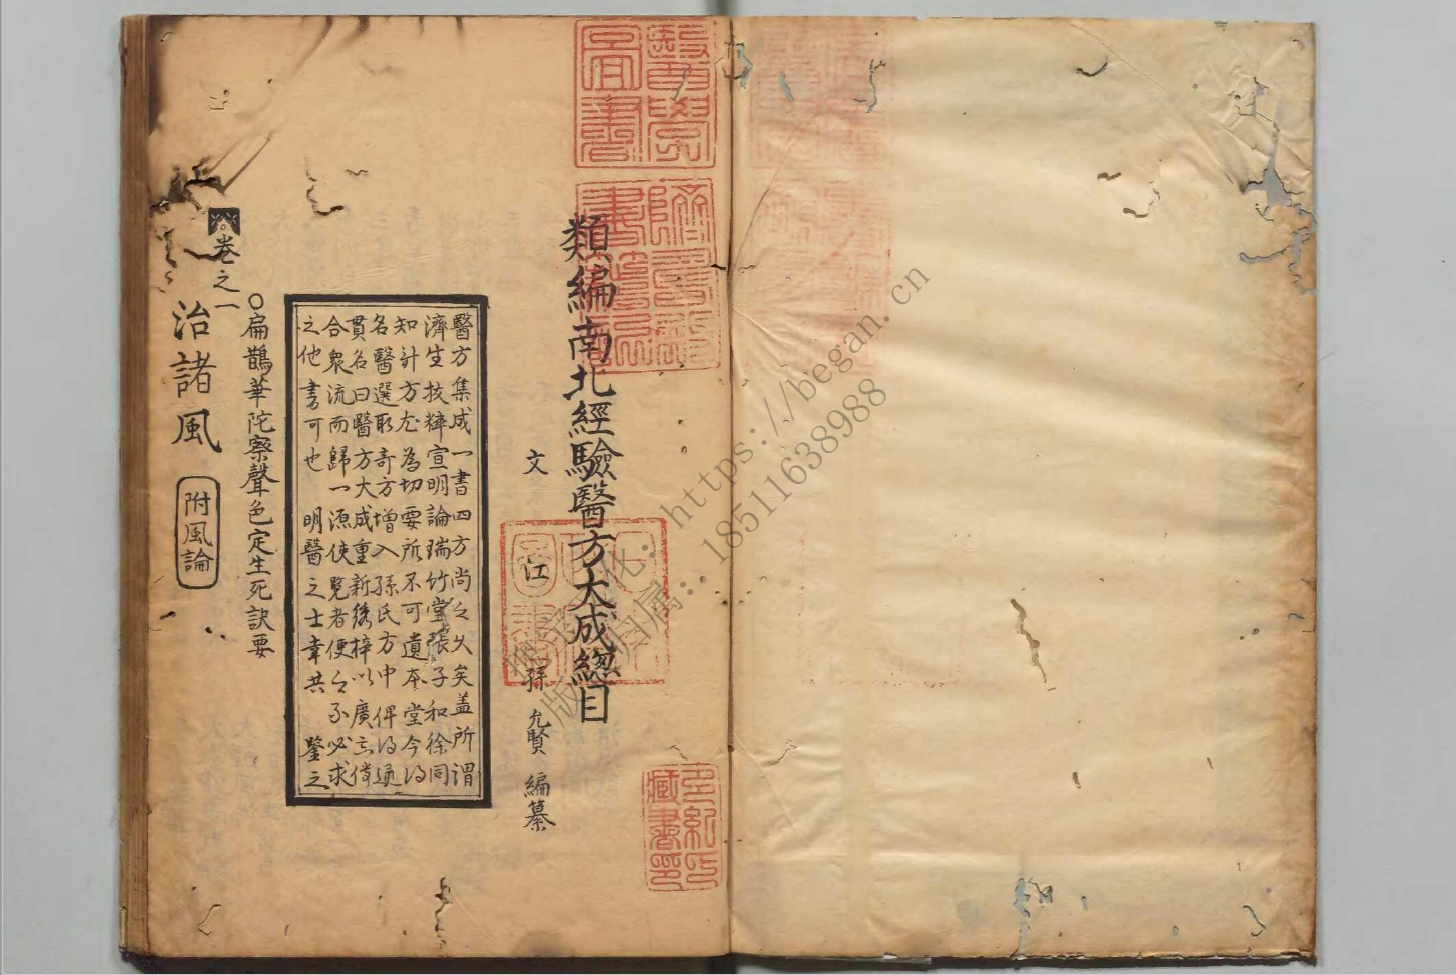 醫學圖書
躋壽殿書籍記
類編南北經驗醫方大成總目
文 江 孫 允賢 編纂
多紀氏藏書印
醫方集成一書四方尚之久矣盖所謂
濟生抜粹宣明論瑞竹堂張子和徐同
知計方尤為切要所不可遺本堂今得
名醫選取奇方增入孫氏方中俾得通
貫名曰醫方大成重新綉梓以廣其傳
合衆流而歸一源使覧者便之不必求
之他書可也 明醫之士幸共 鑒之
○扁鵲華陀察聲色定生死訣要
卷之一
治諸風 附風論
https://began.cn
18511638988